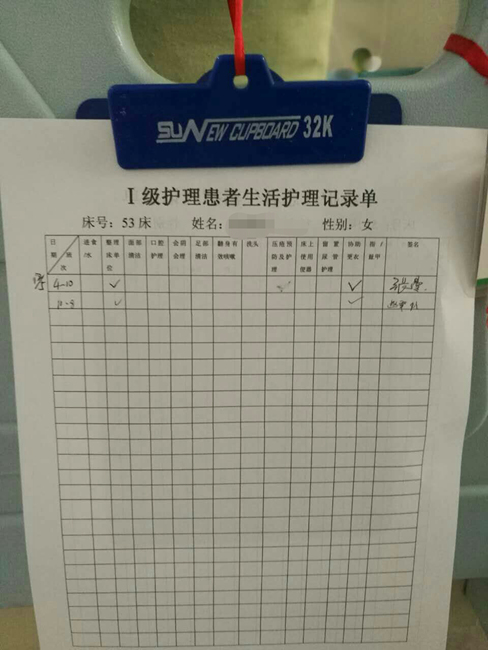 SUNEW CLIPBOARD 32K
I级护理患者生活护理记录单
床号：53床 姓名： 性别：女
日期 班次 进食/水 整理床单位 面部清洁 口腔护理 会阴护理 足部清洁 翻身有效咳嗽 洗头 压疮预防及护理 床上使用便器 留置尿管护理 协助更衣 指/趾甲 签名
4-10 ✓ ✓ ✓
✓ ✓